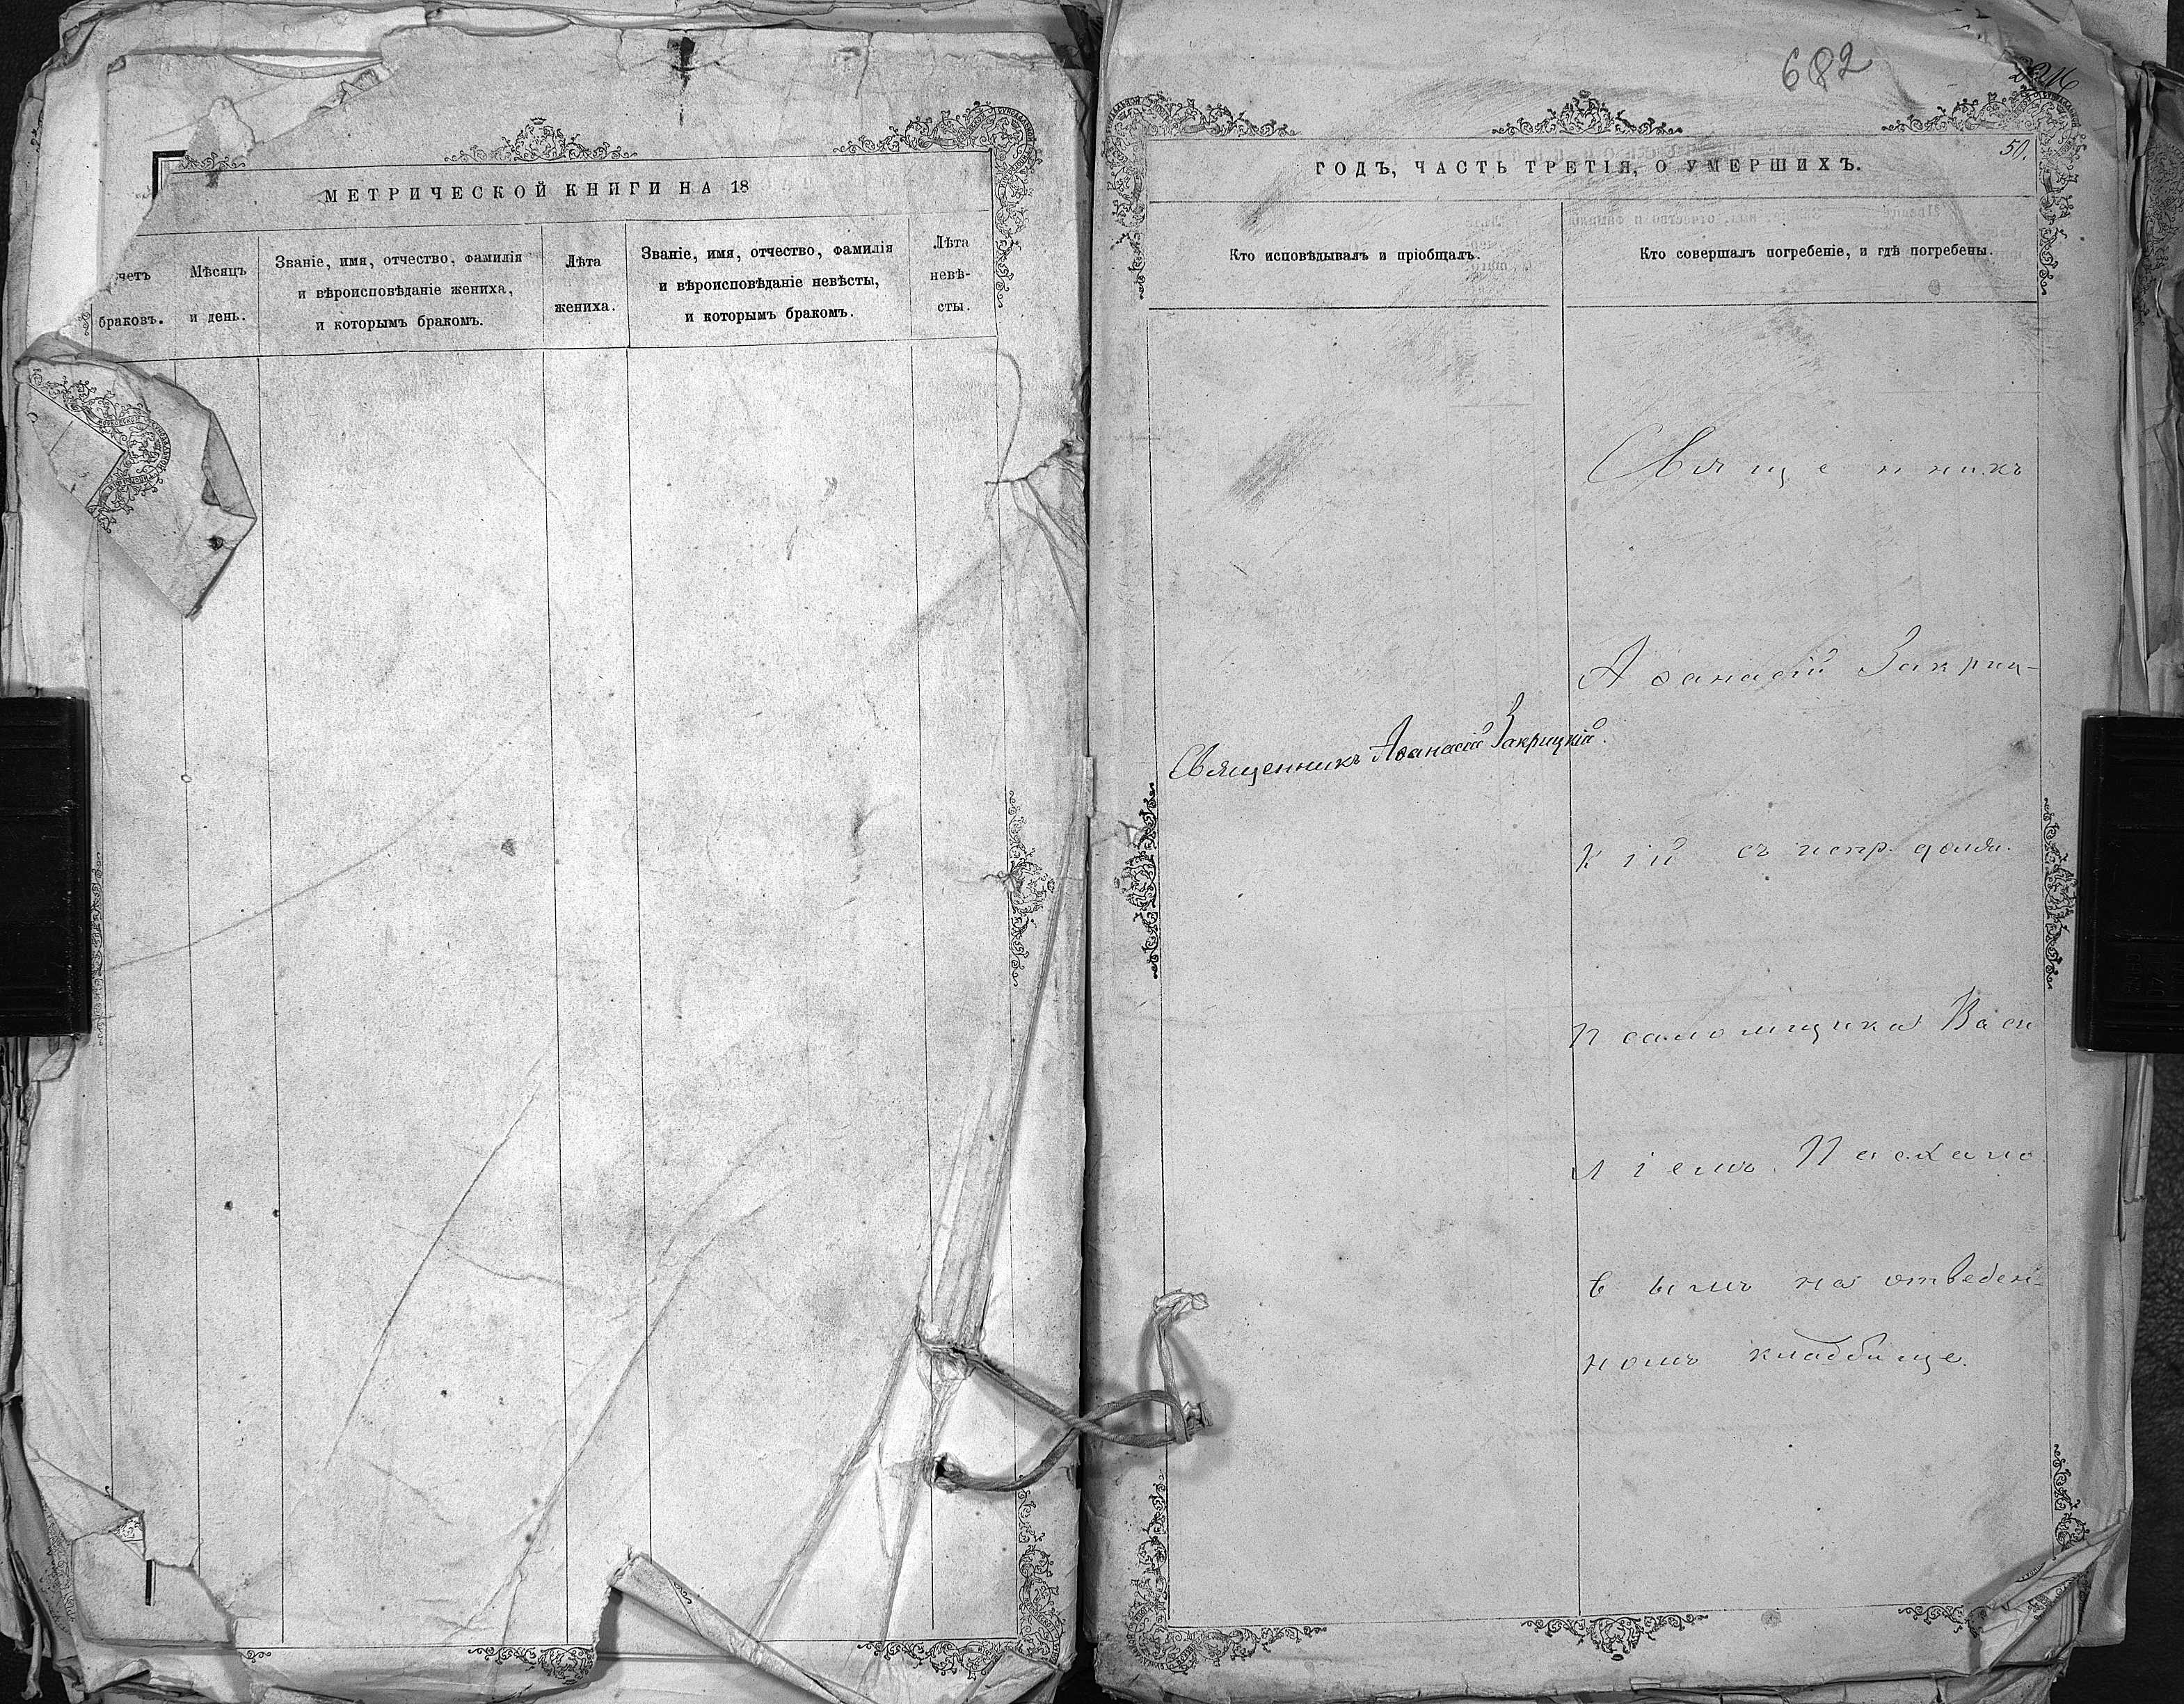 МЕТРИЧЕСКОЙ КНИГИ НА 18
четъ
браковъ.
Мѣсяцъ
и день.
Званіе, имя, отчество, фамилія
и вѣроисповѣданіе жениха,
и которымъ бракомъ.
Лѣта
жениха.
Званіе, имя, отчество, фамилія
и вѣроисповѣданіе невѣсты,
и которымъ бракомъ.
Лѣта
невѣ-
сты.
682
50.
ГОДЪ, ЧАСТЬ ТРЕТІЯ, О УМЕРШИХЪ.
Кто исповѣдывалъ и пріобщалъ.
Кто совершалъ погребеніе, и гдѣ погребены.
Священникъ Аѳанасій Закрицкій.
Священникъ
Аѳанасій Закриц-
кій съ испр. долж.
псаломщика Васи
ліемъ Паскало
вымъ на отведен-
номъ кладбище.